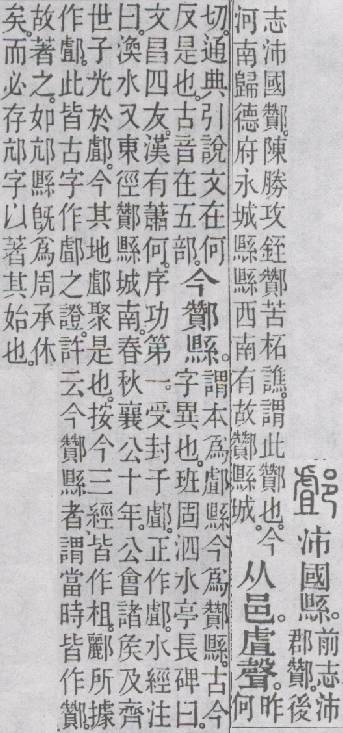 䣜沛國縣。前志沛
郡酇。後
志沛國酇。陳勝攻銍酇苦柘譙。謂此酇也。今
河南歸德府永城縣縣西南有故酇縣城。
从邑。虘聲。昨
何
切。通典引說文在何
反是也。古音在五部。
今酇縣。謂本爲䣜縣。今爲酇縣。古今
字異也。班固泗水亭長碑曰。
文昌四友。漢有蕭何。序功第一。受封于䣜。正作䣜。水經注
曰。渙水又東徑酇縣城南。春秋襄公十年。公會諸矦及齊
世子光於䣜。今其地䣜聚是也。按今三經皆作柤。酈所據
作䣜。此皆古字作䣜之證。許云今酇縣者。謂當時皆作酇。
故著之。如邟縣旣爲周承休
矣。而必存邟字以著其始也。